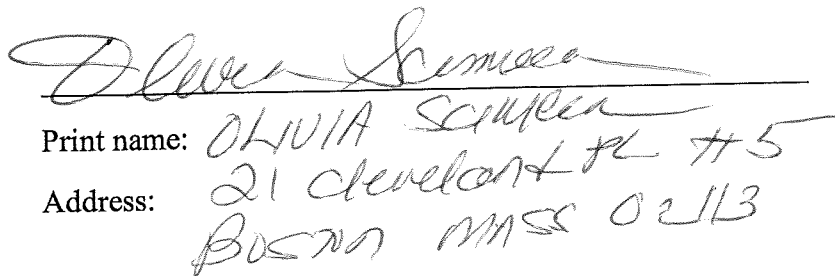 Olivia Scimeca
Print name: OLIVIA Scimeca
Address: 21 Cleveland PL #5
BOSTON MASS 02113